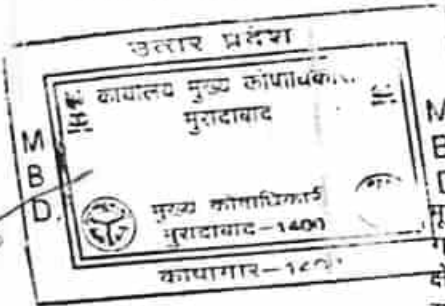 उत्तर प्रदेश
कार्यालय मुख्य कोषाधिकारी
मुरादाबाद
M
B
D.
M
B
मुख्य कोषाधिकारी
मुरादाबाद-1400
कोषागार-1400